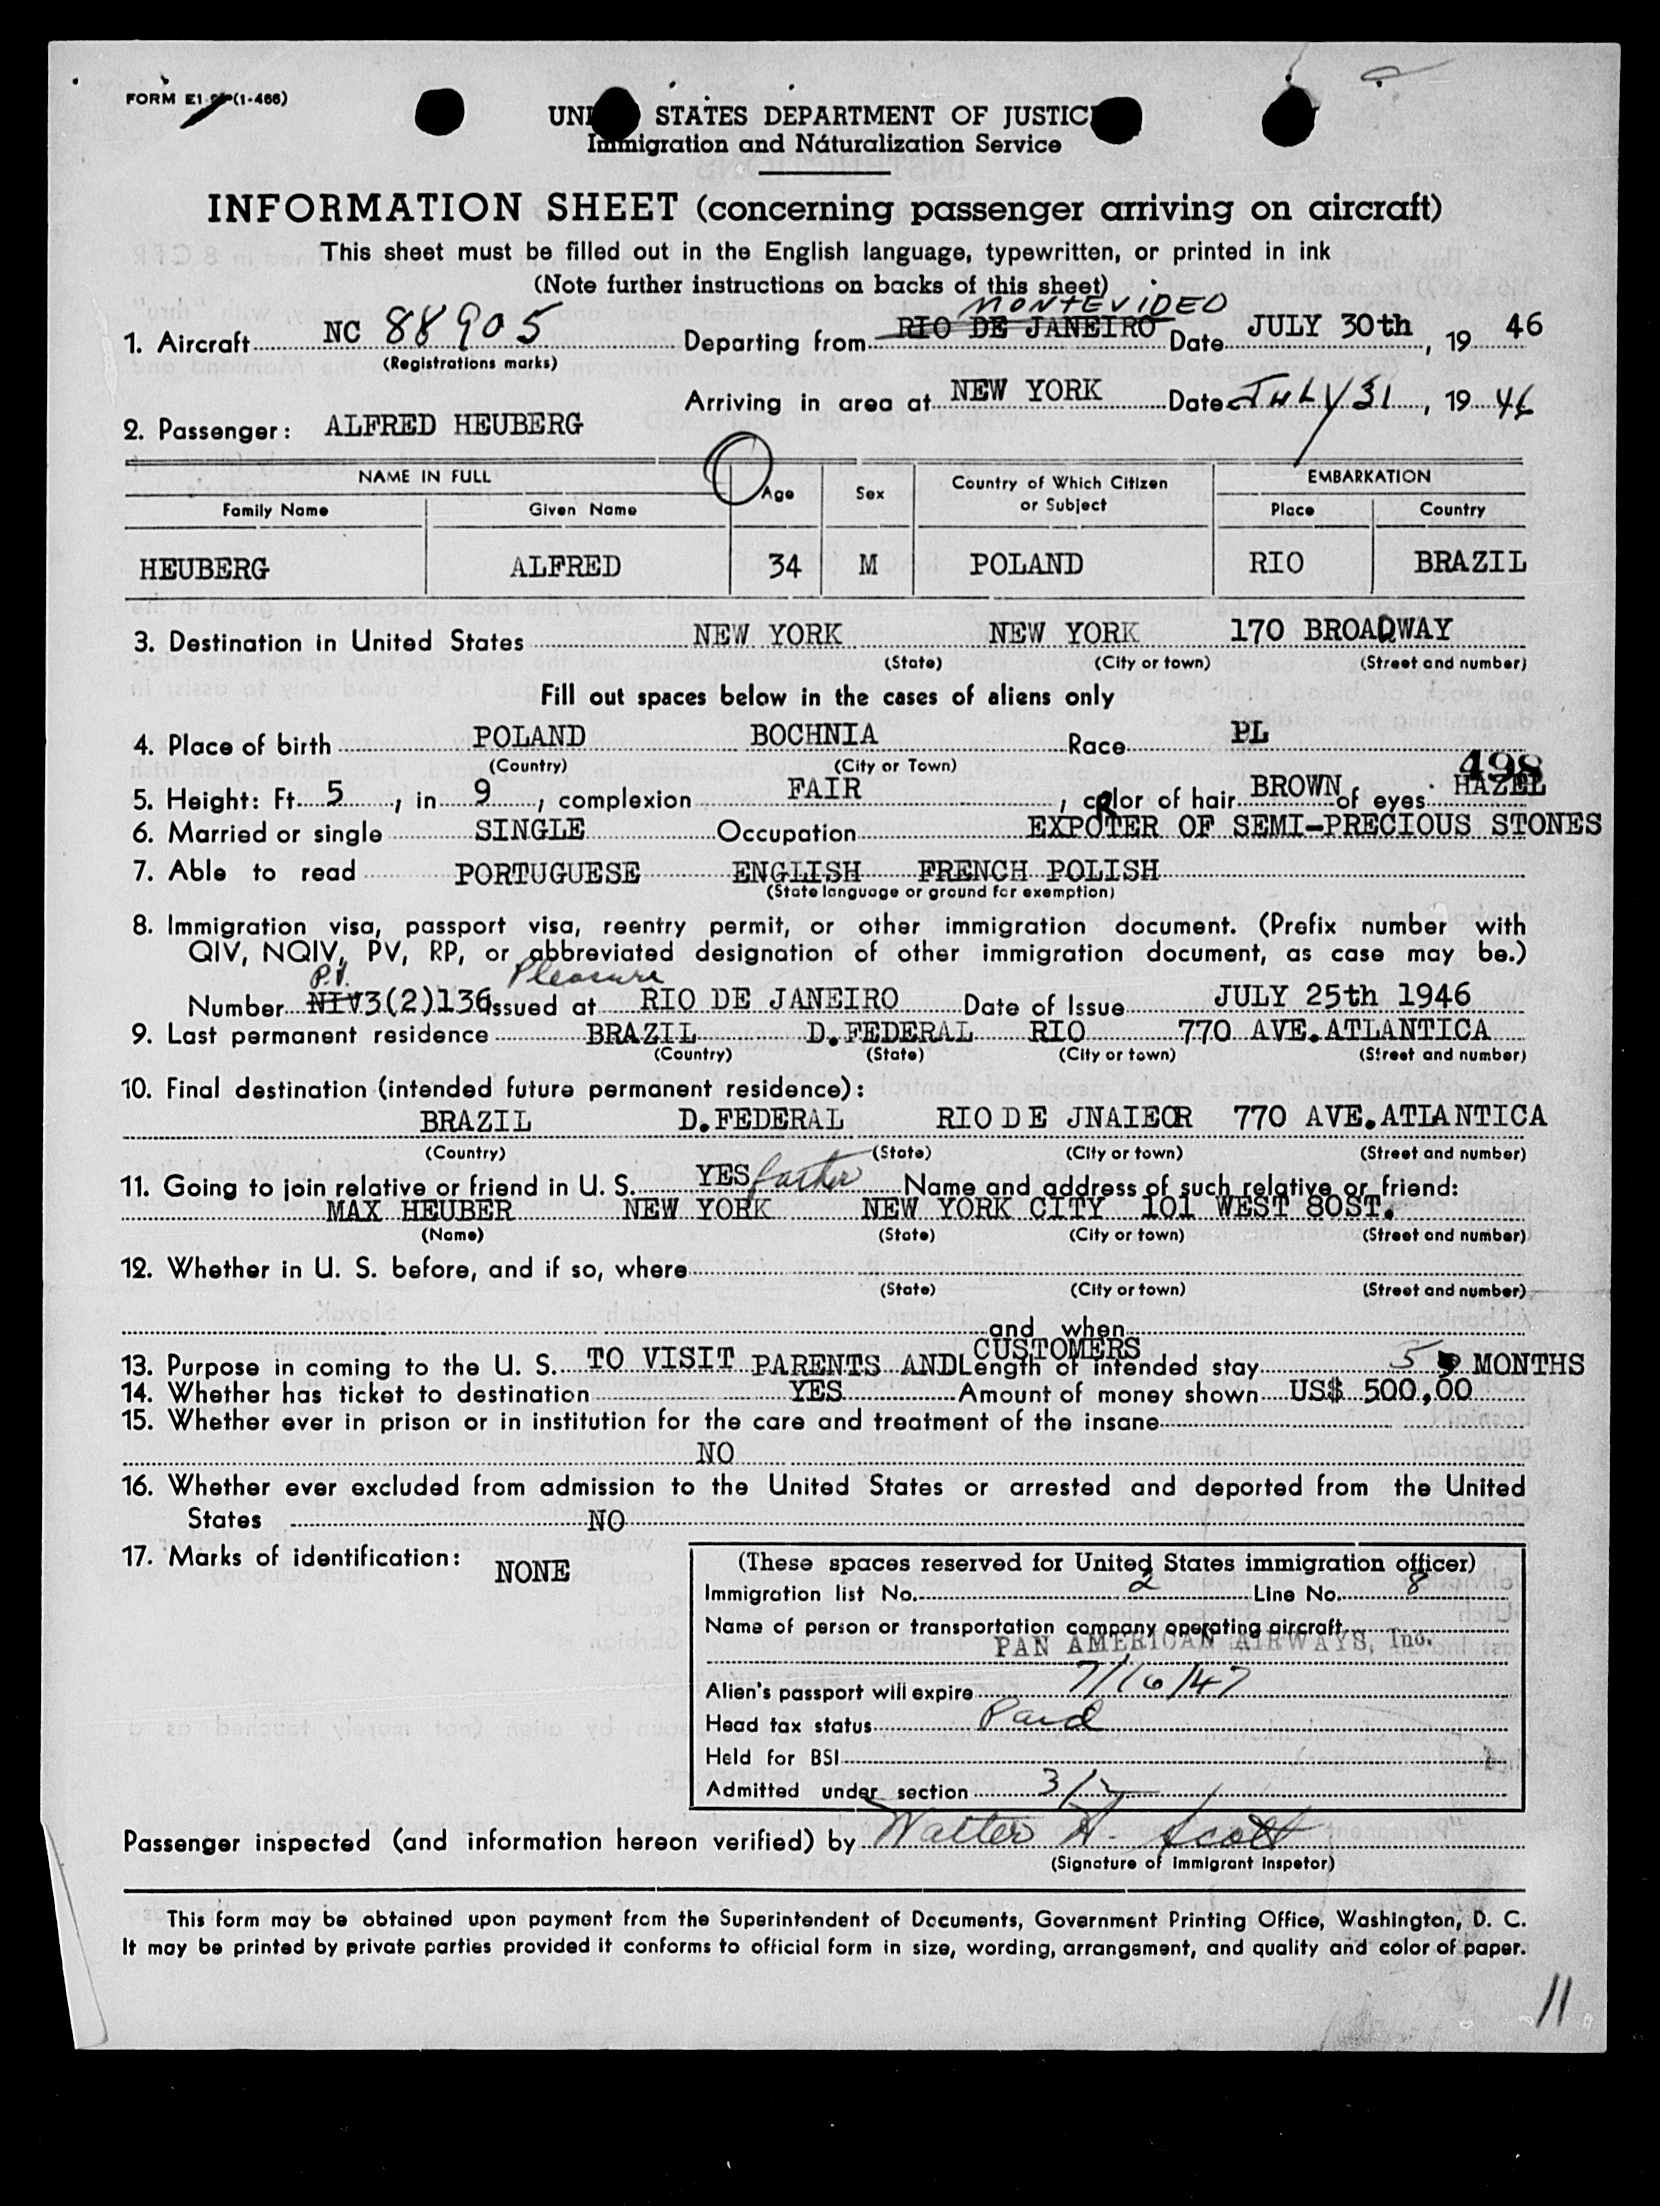 FORM E1 (1-466)
UNI STATES DEPARTMENT OF JUSTIC
Immigration and Naturalization Service
INFORMATION SHEET (concerning passenger arriving on aircraft)
This sheet must be filled out in the English language, typewritten, or printed in ink
(Note further instructions on backs of this sheet)
MONTEVIDEO
1. Aircraft NC 88905 Departing from RIO DE JANEIRO Date JULY 30th, 19 46
(Registrations marks)
Arriving in area at NEW YORK Date JULY 31, 19 46
2. Passenger: ALFRED HEUBERG
NAME IN FULL Age Sex Country of Which Citizen or Subject EMBARKATION
Family Name Given Name Place Country
HEUBERG ALFRED 34 M POLAND RIO BRAZIL
3. Destination in United States NEW YORK NEW YORK 170 BROADWAY
(State) (City or town) (Street and number)
Fill out spaces below in the cases of aliens only
4. Place of birth POLAND BOCHNIA Race PL
(Country) (City or Town)
498
5. Height: Ft. 5, in. 9, complexion FAIR, color of hair BROWN of eyes HAZEL
6. Married or single SINGLE Occupation EXPOTER OF SEMI-PRECIOUS STONES
7. Able to read PORTUGUESE ENGLISH FRENCH POLISH
(State language or ground for exemption)
8. Immigration visa, passport visa, reentry permit, or other immigration document. (Prefix number with
QIV, NQIV, PV, RP, or abbreviated designation of other immigration document, as case may be.)
P.V. Pleasure
Number NIV3(2)136 issued at RIO DE JANEIRO Date of Issue JULY 25th 1946
9. Last permanent residence BRAZIL D.FEDERAL RIO 770 AVE.ATLANTICA
(Country) (State) (City or town) (Street and number)
10. Final destination (intended future permanent residence):
BRAZIL D.FEDERAL RIO DE JNAIEOR 770 AVE.ATLANTICA
(Country) (State) (City or town) (Street and number)
11. Going to join relative or friend in U. S. YES father Name and address of such relative or friend:
MAX HEUBER NEW YORK NEW YORK CITY 101 WEST 80ST.
(Name) (State) (City or town) (Street and number)
12. Whether in U. S. before, and if so, where
(State) (City or town) (Street and number)
and when
CUSTOMERS
13. Purpose in coming to the U. S. TO VISIT PARENTS AND Length of intended stay 5 MONTHS
14. Whether has ticket to destination YES Amount of money shown US$ 500,00
15. Whether ever in prison or in institution for the care and treatment of the insane
NO
16. Whether ever excluded from admission to the United States or arrested and deported from the United
States NO
17. Marks of identification: NONE
(These spaces reserved for United States immigration officer)
Immigration list No. 2 Line No. 8
Name of person or transportation company operating aircraft
PAN AMERICAN AIRWAYS, Inc.
Alien's passport will expire 7/16/47
Head tax status Paid
Held for BSI
Admitted under section 3/2
Passenger inspected (and information hereon verified) by Walter H. Scott
(Signature of Immigrant Inspetor)
This form may be obtained upon payment from the Superintendent of Documents, Government Printing Office, Washington, D. C.
It may be printed by private parties provided it conforms to official form in size, wording, arrangement, and quality and color of paper.
11